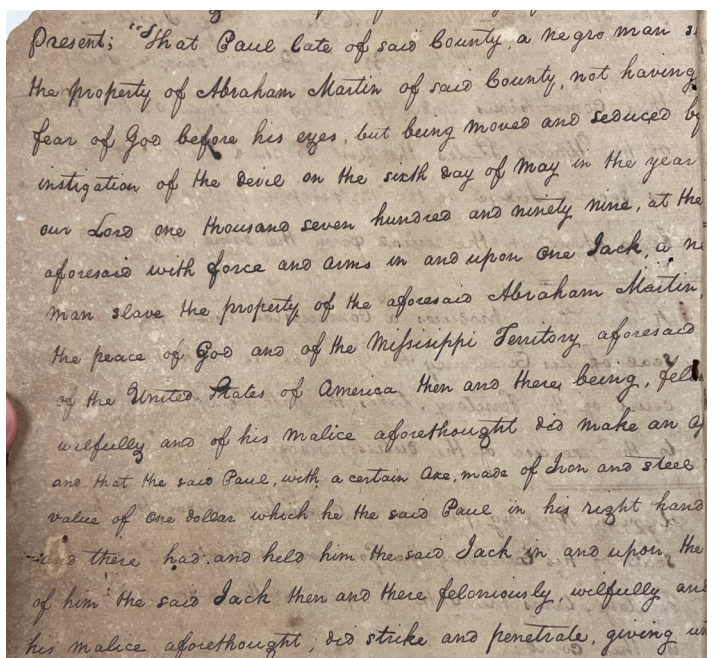 Present; "That Paul late of said County, a negro man s
the property of Abraham Martin of said County, not having
fear of God before his eyes, but being moved and seduced by
instigation of the devil on the sixth day of May in the year
our Lord one thousand seven hundred and ninety nine, at the
aforesaid with force and arms in and upon one Jack, a ne
man slave the property of the aforesaid Abraham Martin,
the peace of God and of the Missisippi Territory aforesaid
of the United States of America then and there being, felo
wilfully and of his malice aforethought did make an a
and that the said Paul, with a certain Axe, made of Iron and steel
value of one dollar which he the said Paul in his right hand
and there had and held him the said Jack in and upon the
of him the said Jack then and there feloniously, wilfully and
his malice aforethought, did strike and penetrate, giving un